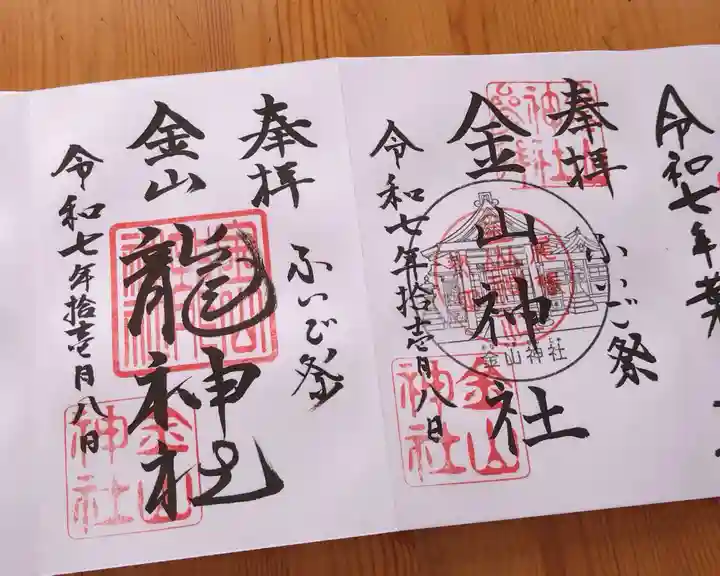 令和七年葉
奉拝
ふいご祭
金山神社
令和七年拾壱月八日
金山神社
金山神社
奉拝
ふいご祭
金山
龍神社
令和七年拾壱月八日
金山神社